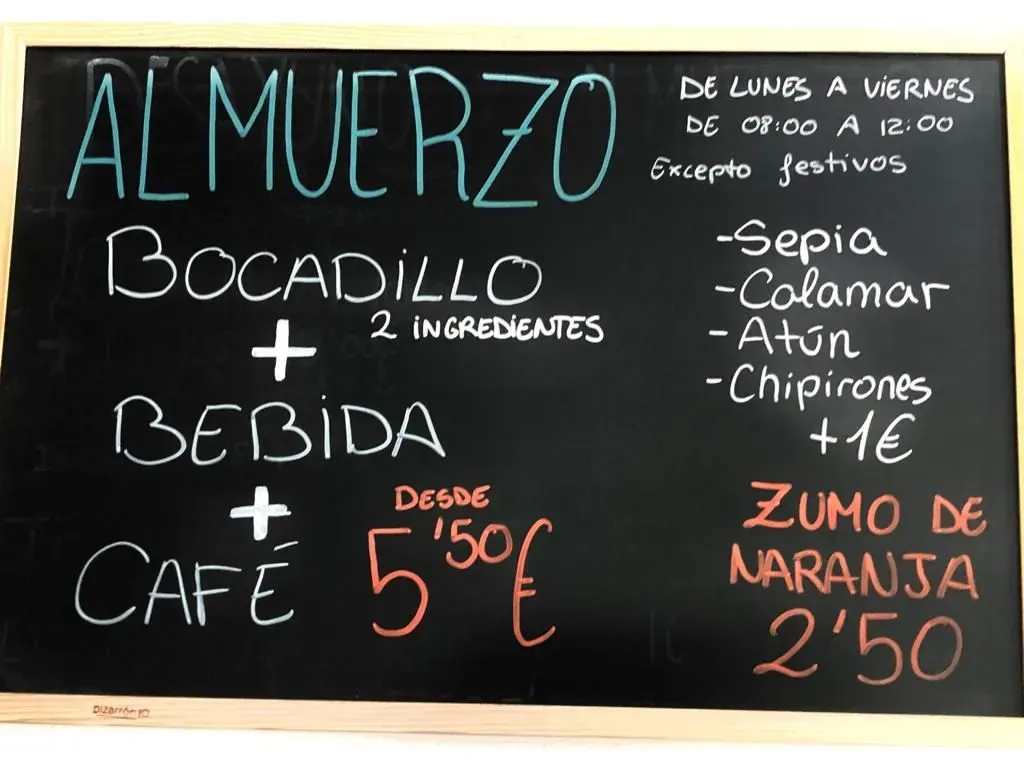 ALMUERZO
DE LUNES A VIERNES
DE 08:00 A 12:00
Excepto festivos
BOCADILLO
2 INGREDIENTES
+
BEBIDA
+
CAFÉ
DESDE
5'50€
-Sepia
-Calamar
-Atún
-Chipirones
+1€
ZUMO DE
NARANJA
2'50